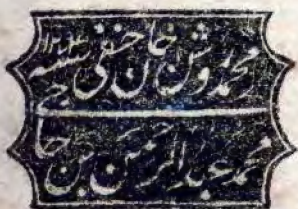 محمد روشن خان حنفی سنه ۱۲۰۴
محمد عبد الرحمن بن حاجی